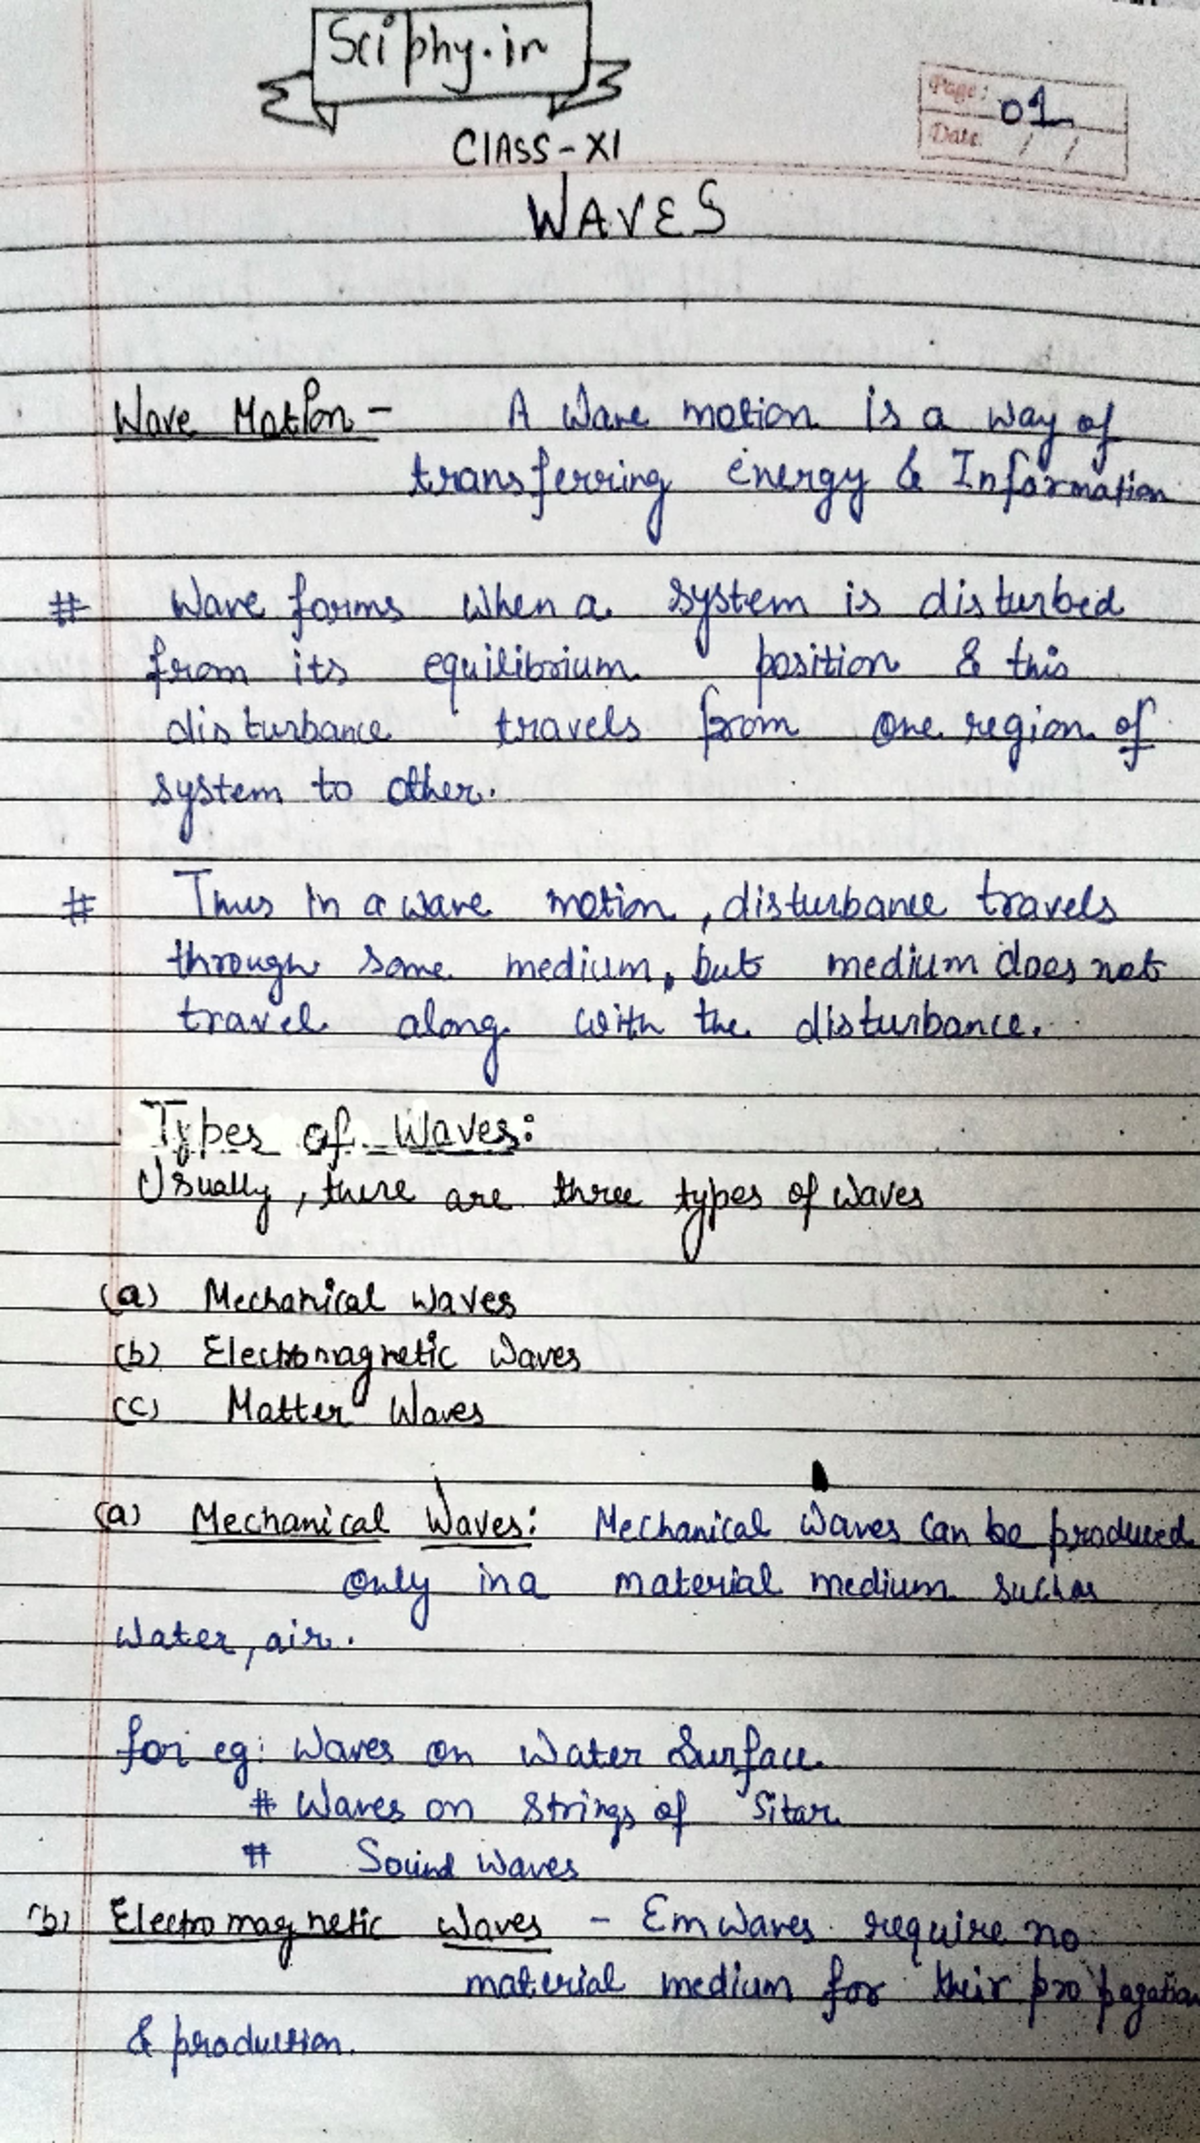 Sciphy.in
Page: 01
Date: / /
CLASS-XI
WAVES
Wave Motion - A Wave motion is a way of
transferring energy & Information
# Wave forms when a system is disturbed
from its equilibrium position & this
disturbance travels from one region of
system to other.
# Thus in a wave motion, disturbance travels
through some medium, but medium does not
travel along with the disturbance.
Types of Waves:
Usually, there are three types of waves
(a) Mechanical waves
(b) Electromagnetic Waves
(c) Matter Waves
(a) Mechanical Waves: Mechanical Waves can be produced
only in a material medium such as
water, air.
for eg: Waves on Water Surface
# Waves on Strings of Sitar
# Sound Waves
(b) Electromagnetic Waves - Em waves require no
material medium for their propagation
& production.